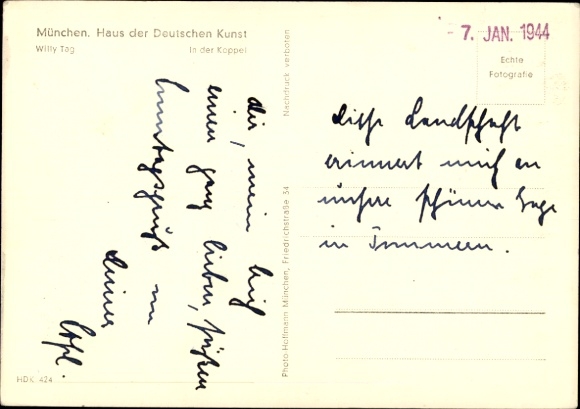 München. Haus der Deutschen Kunst
Willy Tag In der Koppel
Nachdruck verboten
- 7. JAN. 1944
Echte
Fotografie
Diese Landschaft
erinnert mich an
unsere schönen Tage
in
dir, mein
einen ganz lieben, süßen
Sonntagsgruß von
Deiner
Photo-Hoffmann München, Friedrichstraße 34
HDK 424